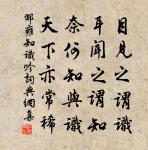 目見之謂識
耳聞之謂知
奈何知與識
天下亦常稀
邵雍知識吟詞典網集